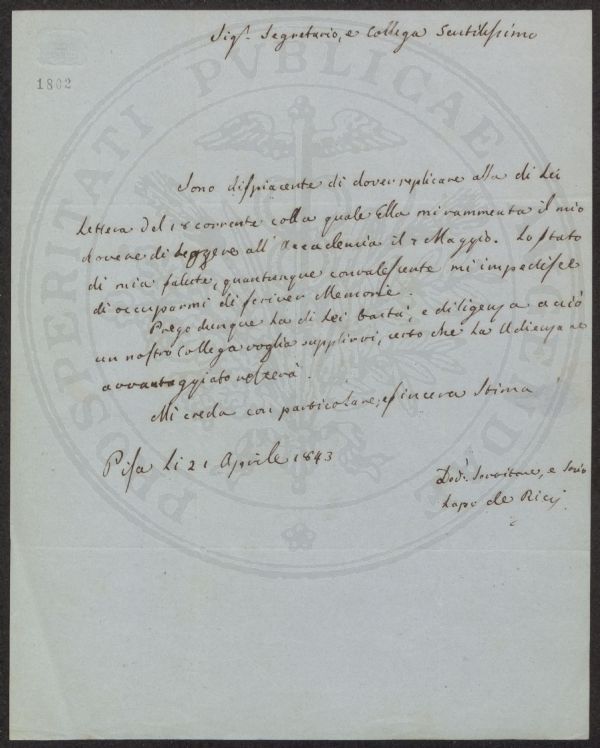 1802
Sig.r Segretario, e Collega Gentilissimo
Sono dispiacente di dover replicare alla di Lei
Lettera del 18 corrente colla quale Ella mi rammenta il mio
dovere di leggere all' Accademia il 7 Maggio. Lo Stato
di mia salute, quantunque convalescente mi impedisce
di occuparmi di scriver Memorie.
Prego dunque la di Lei bontà, e diligenza a ciò
un nostro Collega voglia supplirvi, certo che la Udienza ne
avvantaggiato
Mi creda con particolare, e sincera Stima
Pisa li 21 Aprile 1843
Servitore, e Socio
Lapo de Ricci
PROSPERITATI PVBLICAE AVGENDAE